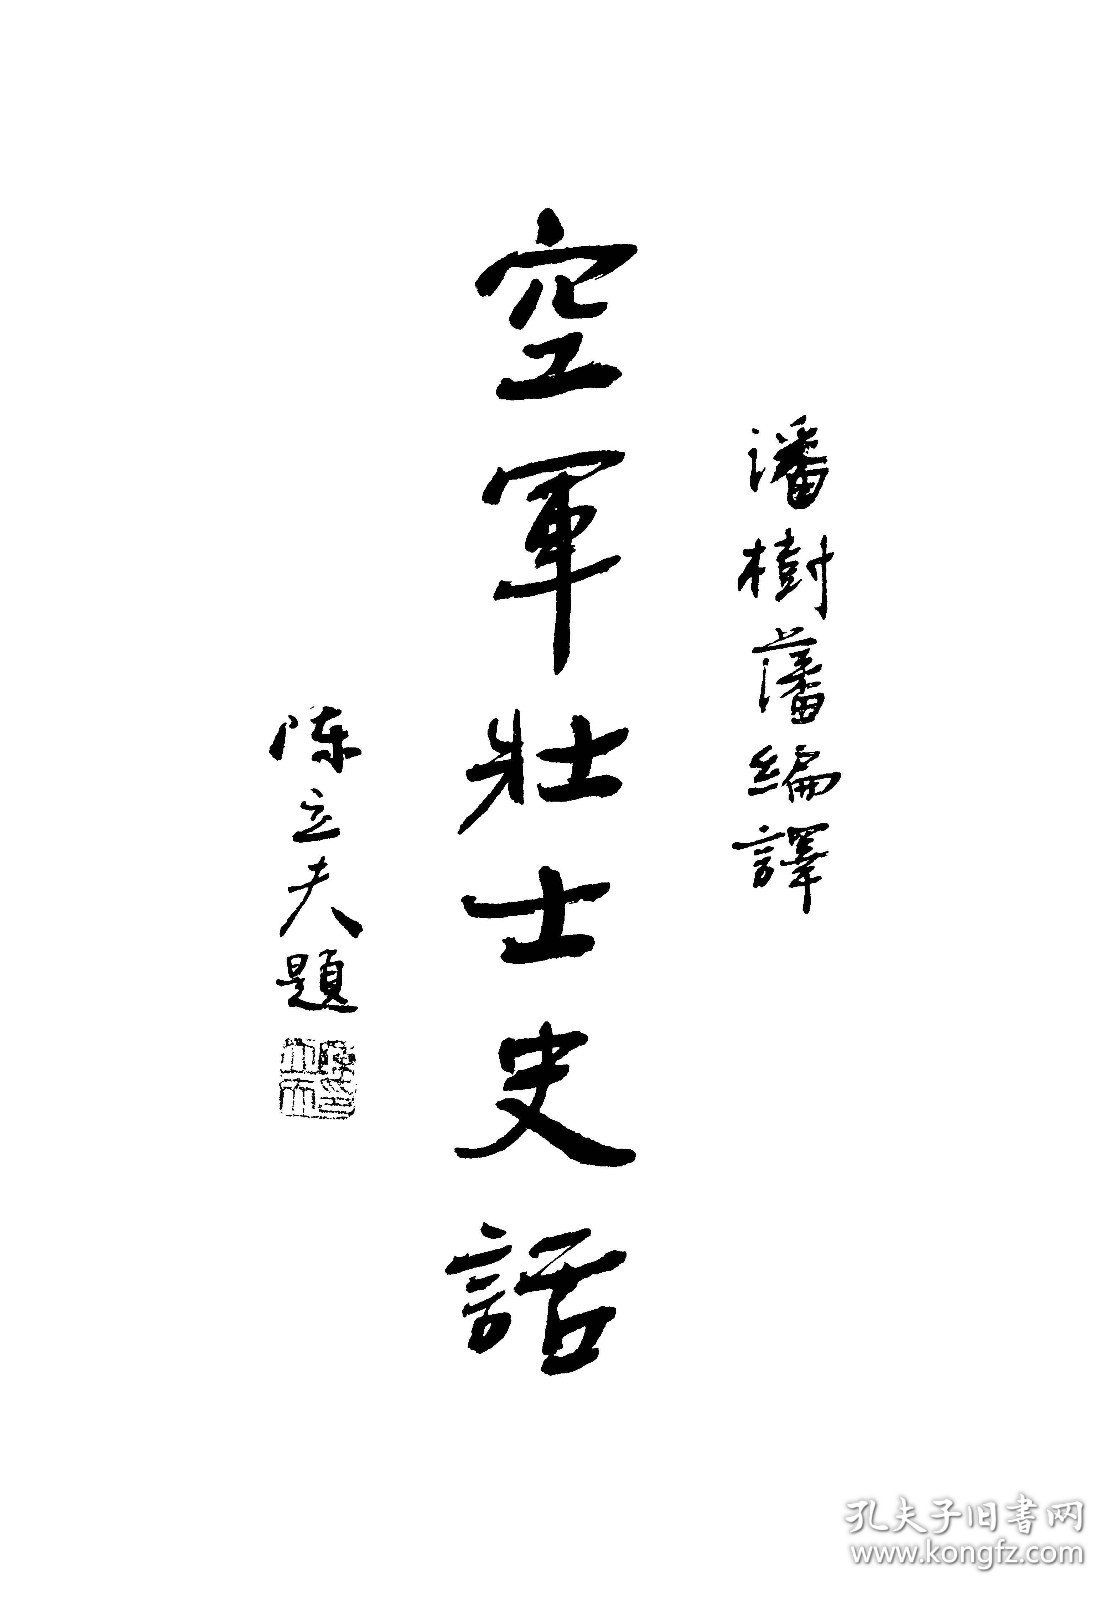 潘樹藩編譯
空軍壯士史話
陳立夫題
孔夫子旧书网
www.kongfz.com